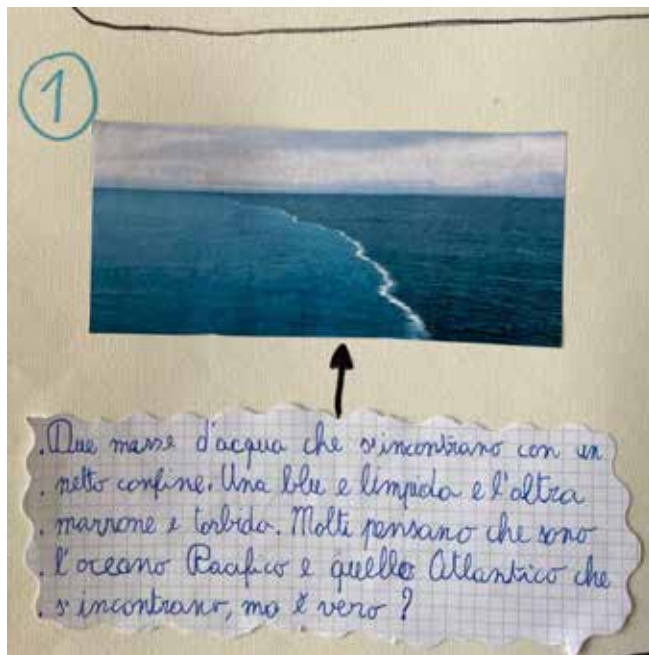 1
.Due masse d'acqua che s'incontrano con un
. netto confine. Una blu e limpida e l'altra
. marrone e torbida. Molti pensano che sono
. l'oceano Pacifico e quello Atlantico che
. s'incontrano, ma è vero ?